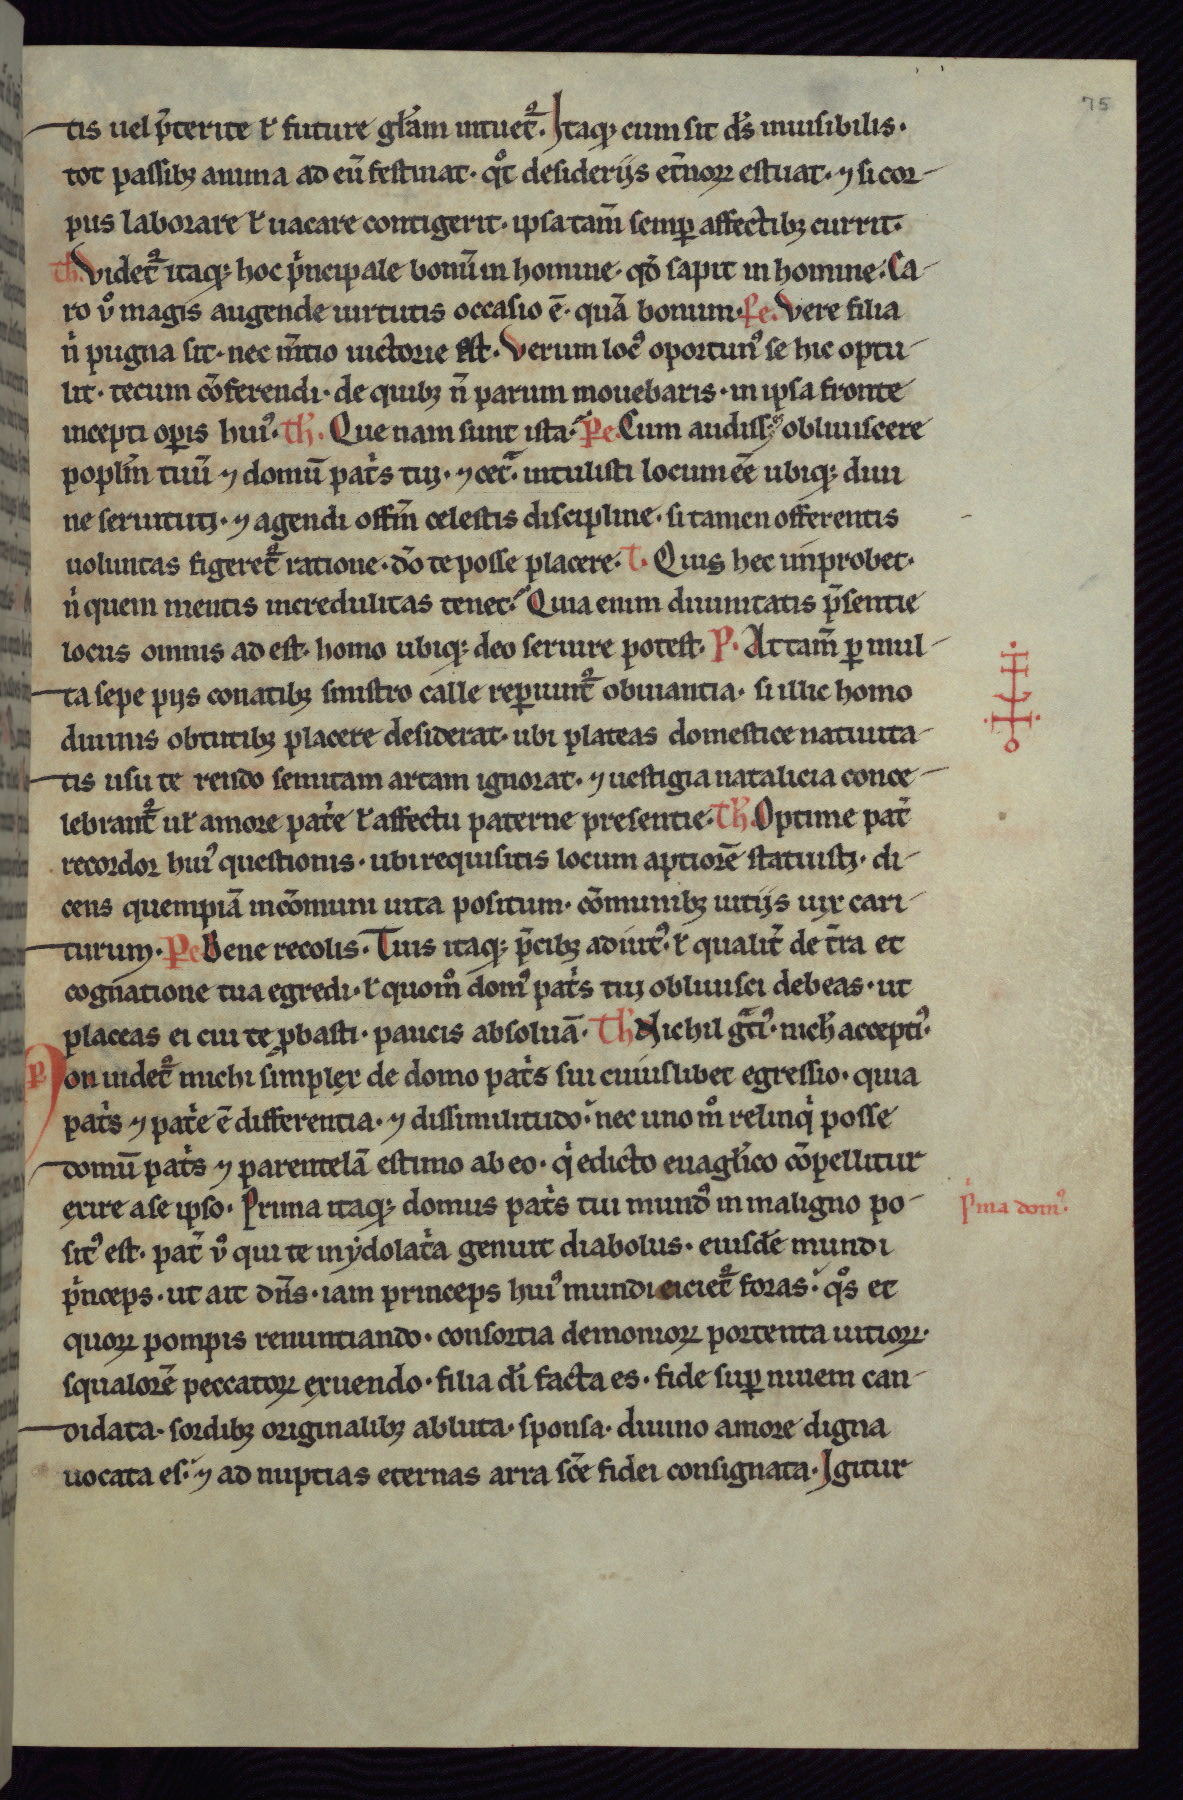 75
tis uel p̄terite ł future gl̄am intuet᷑. Itaq; cum sit ds̄ inuisibilis.
tot passib; anima ad eū festinat. qͦt desiderijs et̄noꝝ estuat. ⁊ si cor-
pus laborare ł uacare contigerit. ipsa tam̄ semꝑ affectib; currit.
Th. Videt᷑ itaq; hoc p̍ncipale bonū in homine. qd̄ sapit in homine. Ca-
ro ůͦ magis augende uirtutis occasio ē. quā bonum. Pe. Vere filia
n̍ pugna sit. nec m̄tio uictorie est. Verum locꝰ oportunꝰ se hic optu-
lit. tecum cōferendi. de quib; n̄ parum mouebaris. in ipsa fronte
incepti oꝑis huiꝰ. Th. Que nam sunt ista. Pe. Cum audiss; obliuiscere
popl̄m tuū ⁊ domū pat̍s tui. ⁊ cet̄. intulisti locum eē ubiq; diui-
ne seruituti. ⁊ agendi offm̄ celestis discipline. si tamen offerentis
uoluntas figeret᷑ ratione. dō te posse placere. T. Quis hec improbet.
n̍ quem mentis incredulitas tenet. Quia enim diuinitatis p̄sentie
locus omnis ad est. homo ubiq; deo seruire potest. P. Attam̄ ꝑ mul-
ta sepe pijs conatib; sinistro calle reꝑiunt᷑ obuiantia. si illic homo
diuinis obtutib; placere desiderat. ubi plateas domestice natiuita-
tis usu te rendo semitam artam ignorat. ⁊ uestigia natalicia conce-
lebrant᷑ uł amore pat̍e ł affectu paterne presentie. Th. Optime pat̄
recordor huiꝰ questionis. ubi requisitis locum aptiorē statuisti. di-
cens quempiā in cōmuni uita positum. cōmunib; uitijs uix cari-
turum. Pe. Bene recolis. Tuis itaq; p̄cib; adiutꝰ. ł qualit̄ de t̄ra et
cognatione tua egredi. ł quom̊ domꝰ pat̍s tui obliuisci debeas. ut
placeas ei cui te ꝓbasti. paucis absoluā. Th. Nichil gt̄iꝰ. nich̄ acceptiꝰ.
P Non uidet᷑ michi simplex de domo pat̍s sui cuiuslibet egressio. quia
pat̍s ⁊ pat̍e ē differentia. ⁊ dissimilitudo. nec uno m̊ relinq̍ posse
domū pat̍s ⁊ parentelā estimo ab eo. q̍ edicto euagl̄ico cōpellitur
exire a se ipso. Prima itaq; domus pat̍s tui mundꝰ in maligno po-
sitꝰ est. pat̄ ůͦ qui te in ydolat̍a genuit diabolus. eiusdē mundi
p̍nceps. ut ait dn̄s. iam princeps huiꝰ mundi eiciet᷑ foras. qͦs et
quoꝝ pompis renuntiando. consortia demonioꝝ portenta uitioꝝ.
squalorē peccatoꝝ exuendo. filia dī facta es. fide suꝑ niuem can-
didata. sordib; originalib; abluta. sponsa. diuino amore digna
uocata es. ⁊ ad nuptias eternas arra scē fidei consignata. Igitur
p̍ma domꝰ.